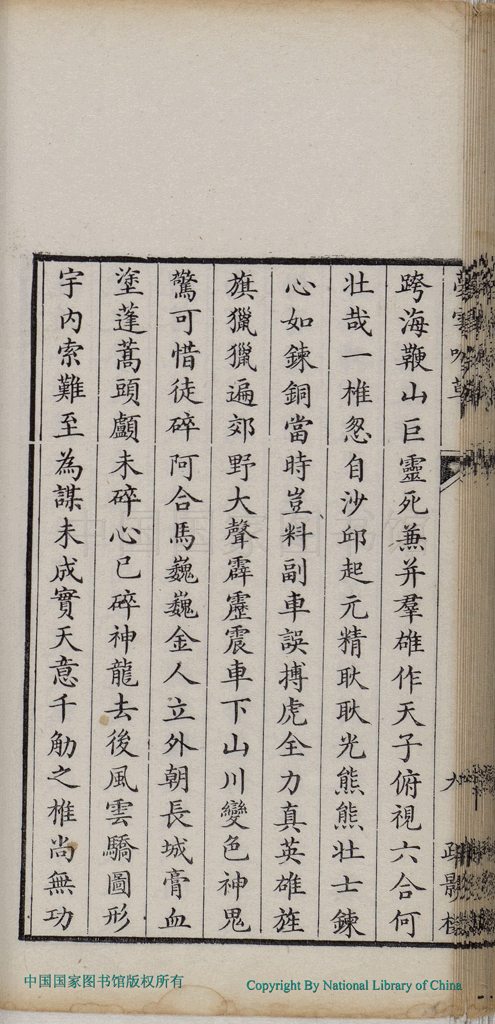 跨海鞭山巨靈死兼并羣雄作天子俯視六合何
壯哉一椎忽自沙邱起元精耿耿光熊熊壯士鍊
心如鍊銅當時豈料副車誤搏虎全力真英雄旌
旗獵獵遍郊野大聲霹靂震車下山川變色神鬼
驚可惜徒碎阿合馬巍巍金人立外朝長城膏血
塗蓬蒿頭顱未碎心已碎神龍去後風雲驕圖形
宇内索難至為謀未成實天意千觔之椎尚無功
中国国家图书馆版权所有
Copyright By National Library of China